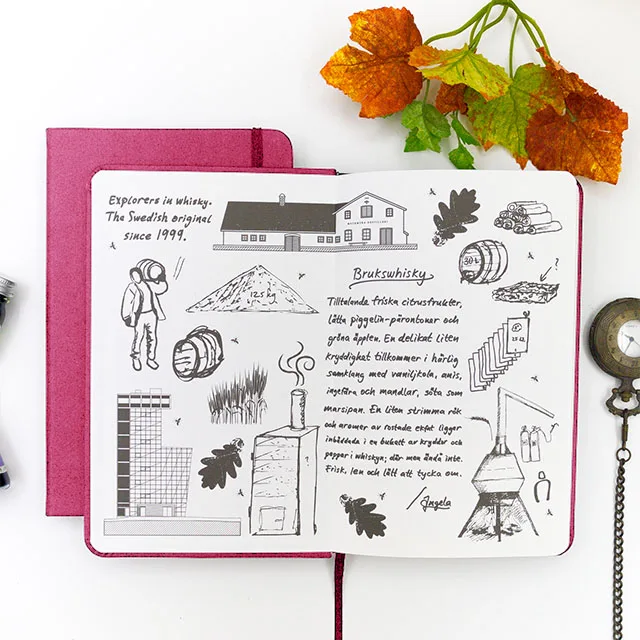 Explorers in whisky.
The Swedish original
since 1999.
125 kg
30 L
?
?
Brukswhisky
Tilltalande friska citrusfrukter,
lätta piggelin-pärontoner och
gröna äpplen. En delikat liten
kryddighet tillkommer i härlig
samklang med vaniljkola, anis,
ingefära och mandlar, söta som
marsipan. En liten strimma rök
och aromer av rostade ekfat ligger
inbäddade i en bukett av kryddor och
peppar i whiskyn; där men ändå inte.
Frisk, len och lätt att tycka om.
/Angela